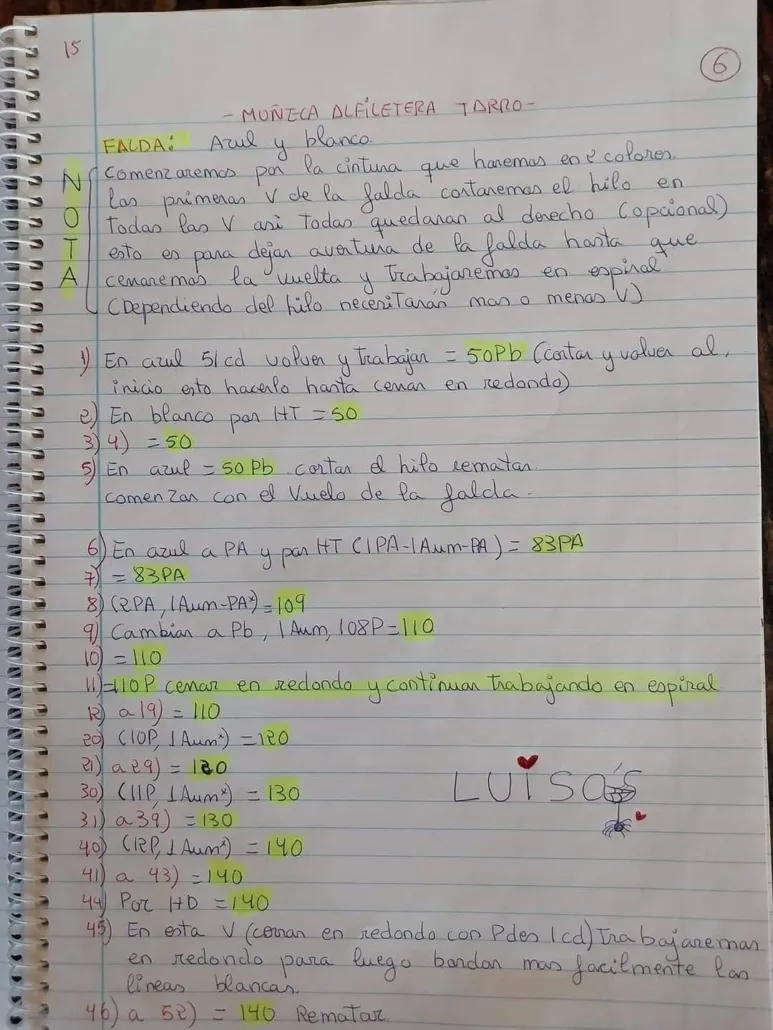 15
6
- MUÑECA ALFILETERA TARRO -
FALDA: Azul y blanco.
NOTA
Comenzaremos por la cintura que haremos en 2 colores.
las primeras V de la falda cortaremos el hilo en
todas las V asi todas quedaran al derecho (opcional)
esto es para dejar avertura de la falda hasta que
cerraremos la vuelta y trabajaremos en espiral
(Dependiendo del hilo necesitarán mas o menos V)
1) En azul 51cd volver y trabajar = 50Pb (cortar y volver al,
inicio esto hacerlo hasta cerrar en redondo)
2) En blanco por HT = 50
3) 4) = 50
5) En azul = 50 Pb cortar el hilo rematar.
Comenzar con el Vuelo de la falda.
6) En azul a PA y por HT (1PA-1Aum-PA) = 83PA
7) = 83PA
8) (2PA, 1Aum-PA*) = 109
9) Cambiar a Pb, 1 Aum, 108P = 110
10) = 110
11) = 110P cerrar en redondo y continuar trabajando en espiral
12) a 19) = 110
20) (10P, 1 Aum*) = 120
21) a 29) = 120
30) (11P, 1 Aum*) = 130
31) a 39) = 130
40) (12P, 1 Aum*) = 140
41) a 43) = 140
44) Por HD = 140
45) En esta V (cerrar en redondo con Pdes 1cd) Trabajaremos
en redondo para luego bordar mas facilmente las
lineas blancas.
46) a 52) = 140 Rematar.
LUISA'S